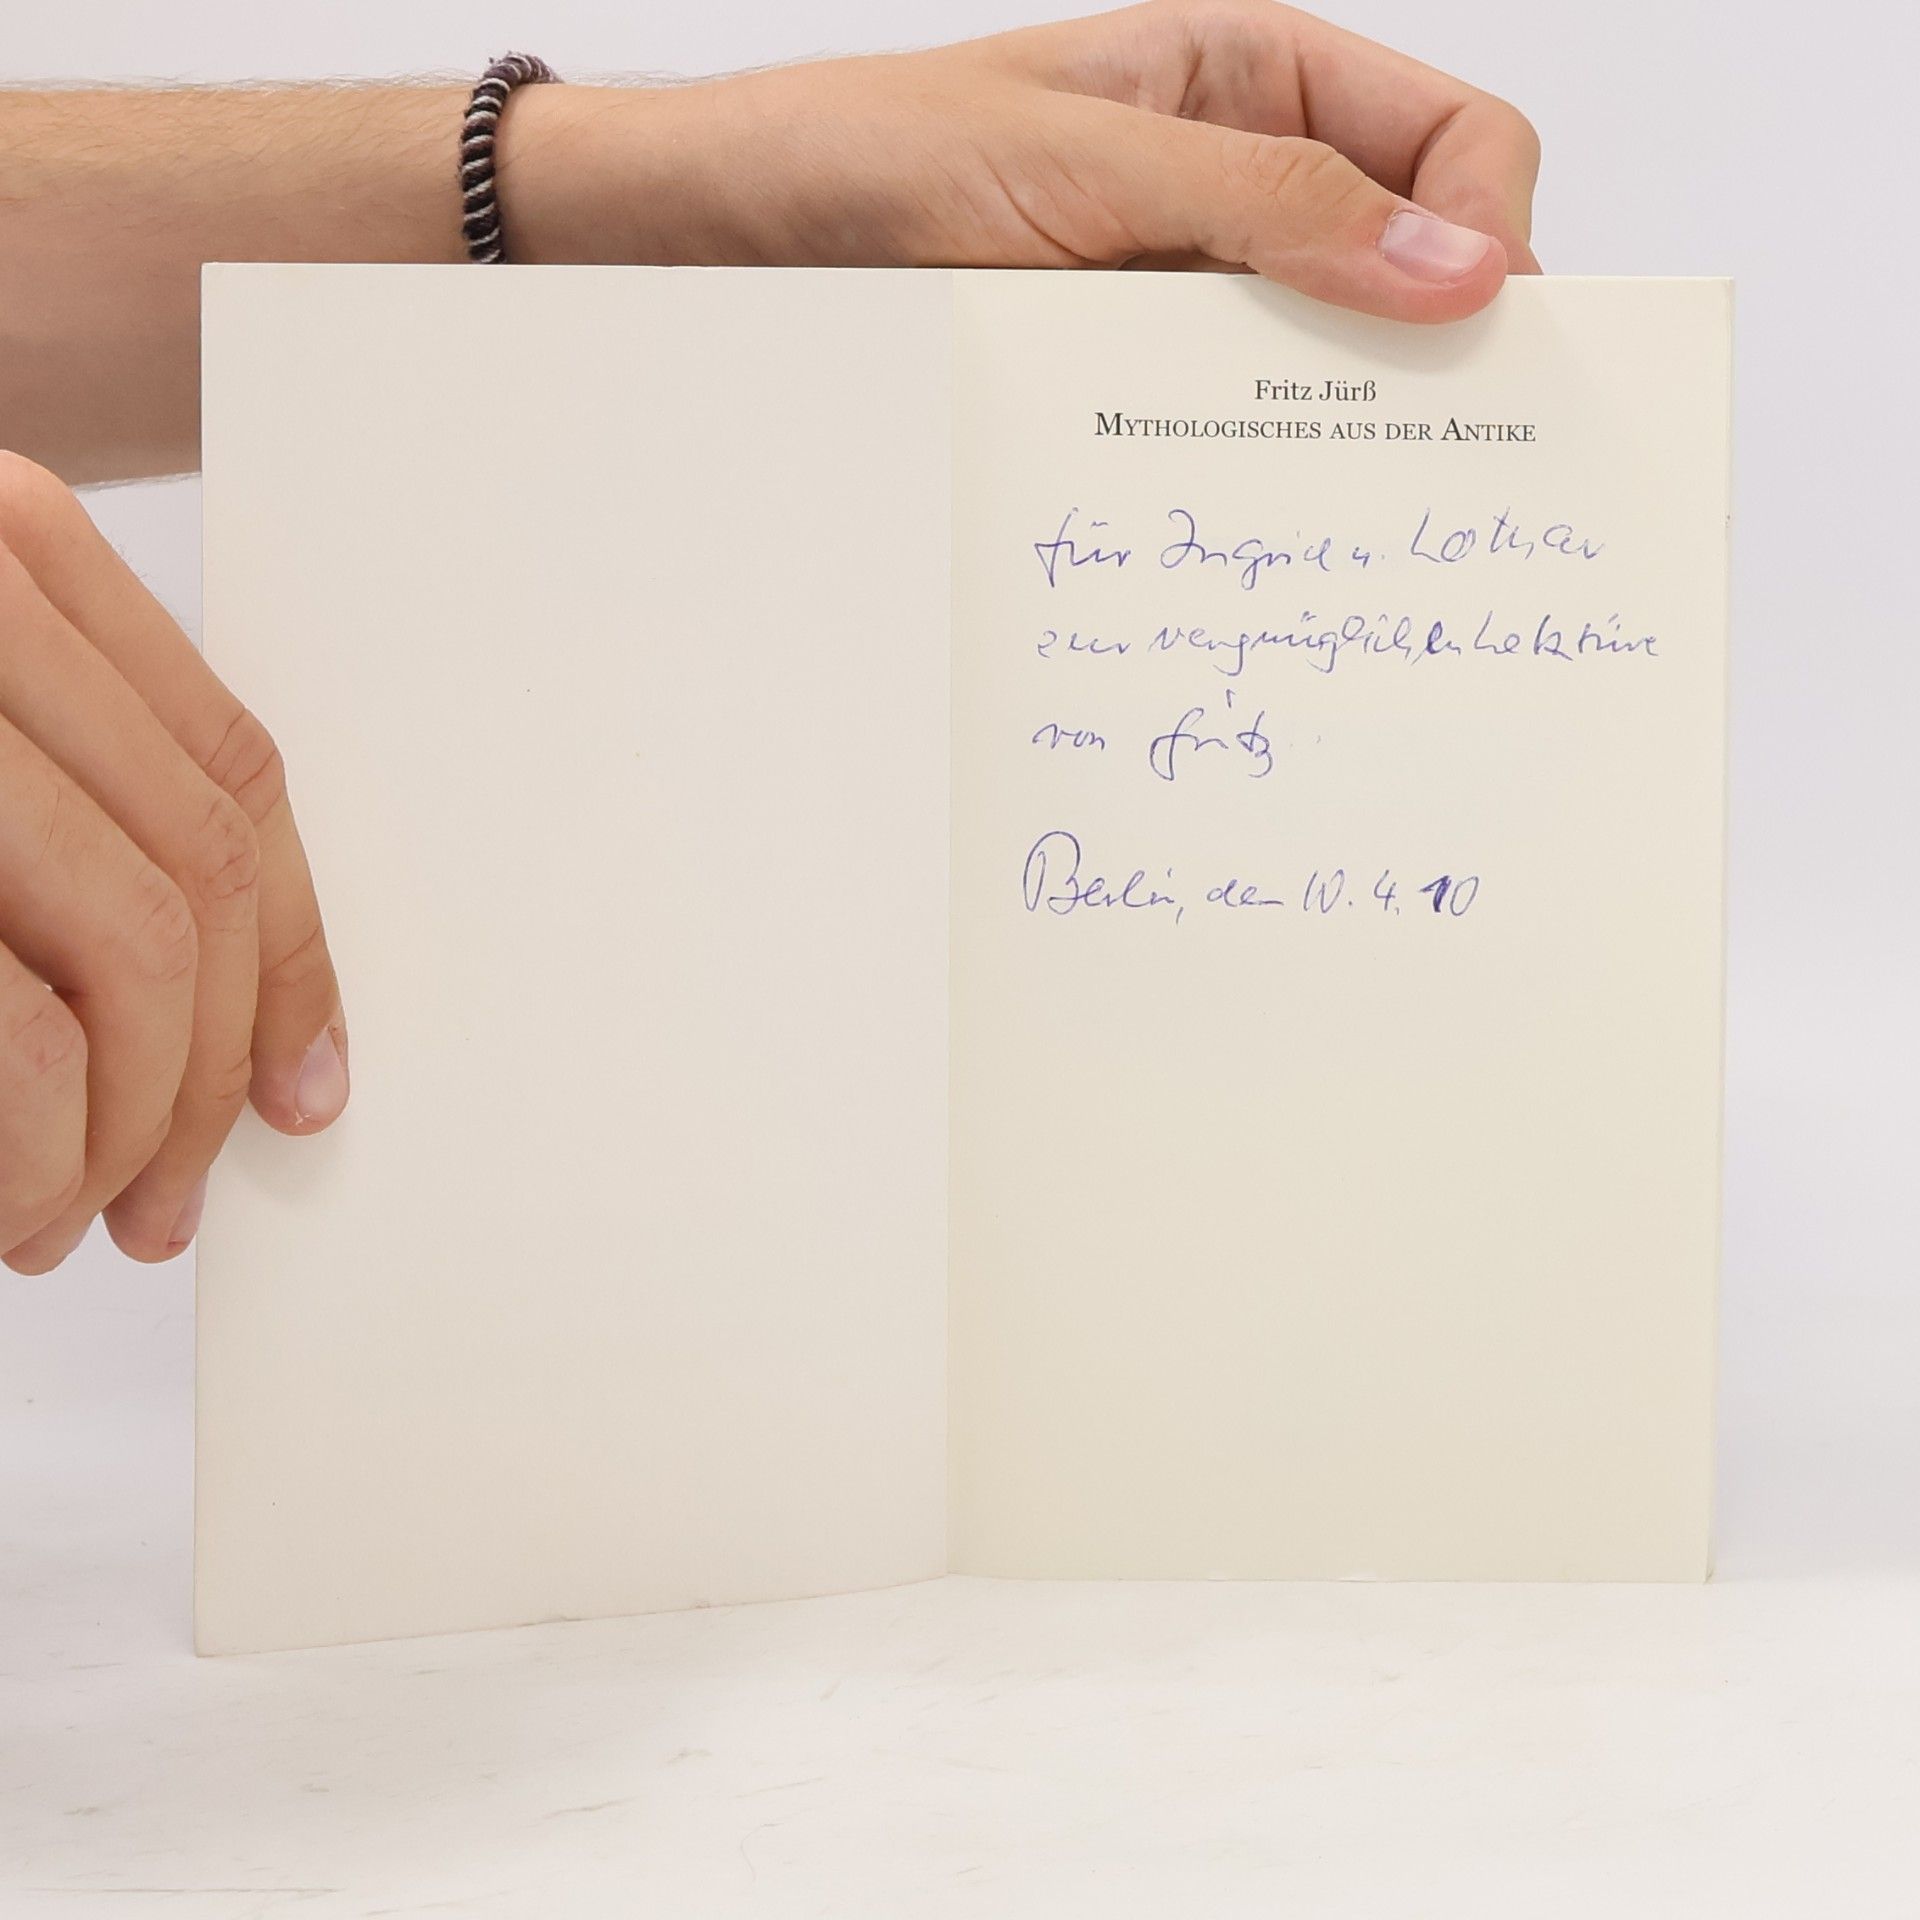 Fritz Jürß
MYTHOLOGISCHES AUS DER ANTIKE
für Ingrid u. Lothar
zur vergnüglichen Lektüre
von Fritz.
Berlin, den 10. 4. 10